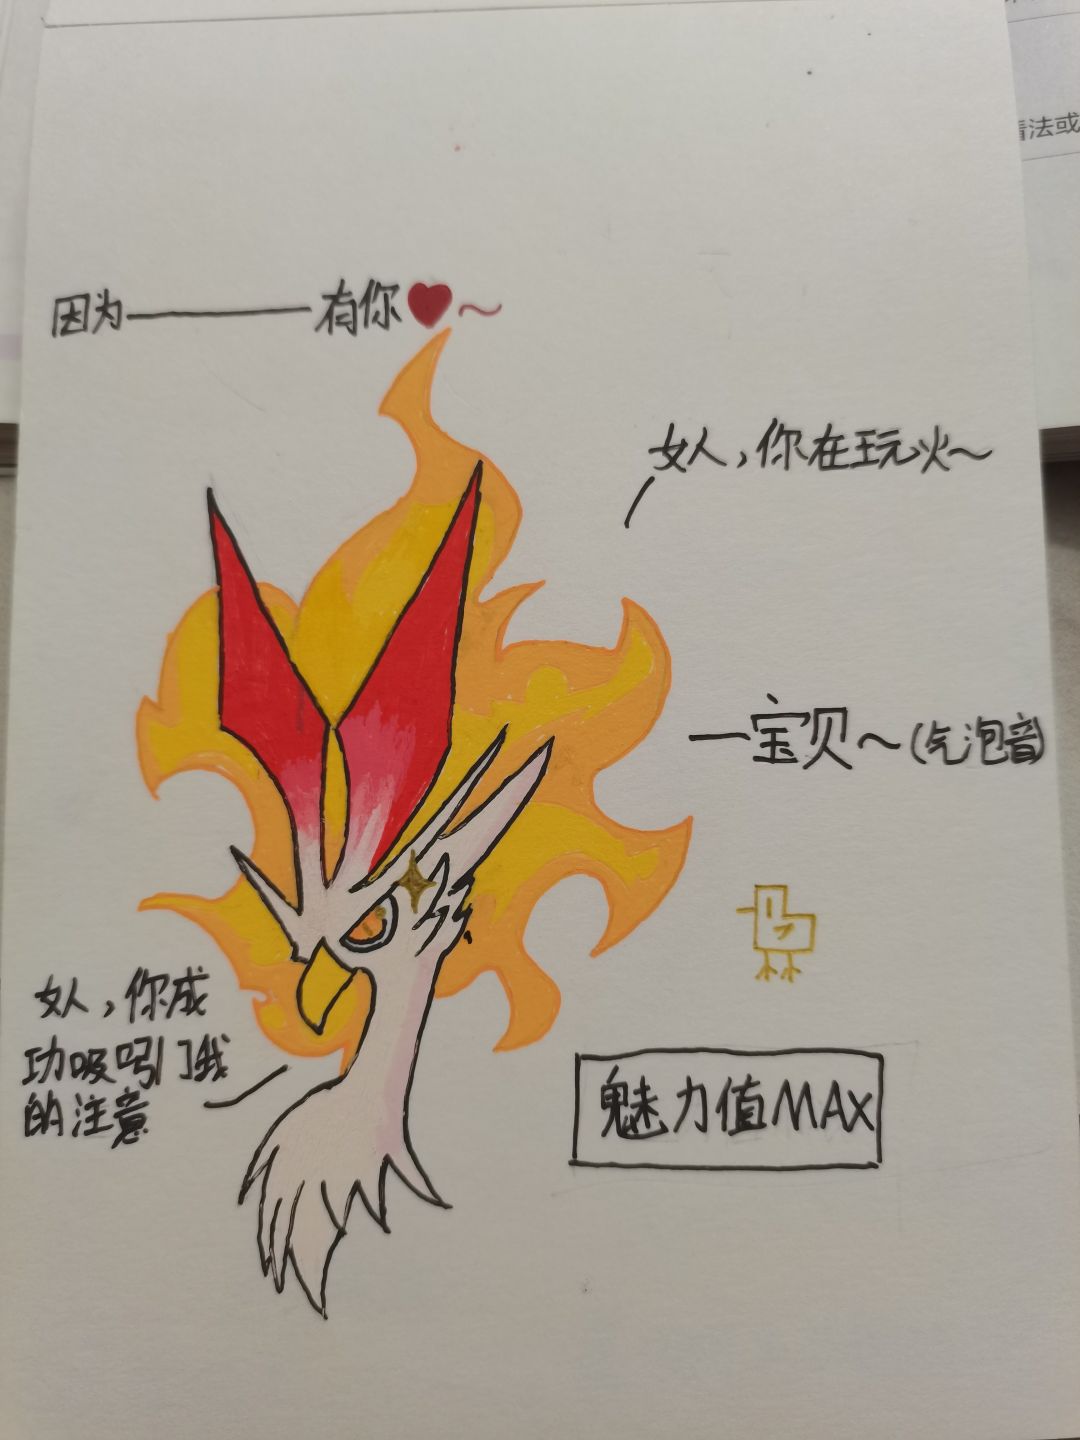 因为——有你❤~
女人，你在玩火~
一宝贝~(气泡音)
女人，你成
功吸引了我
的注意
魅力值MAX